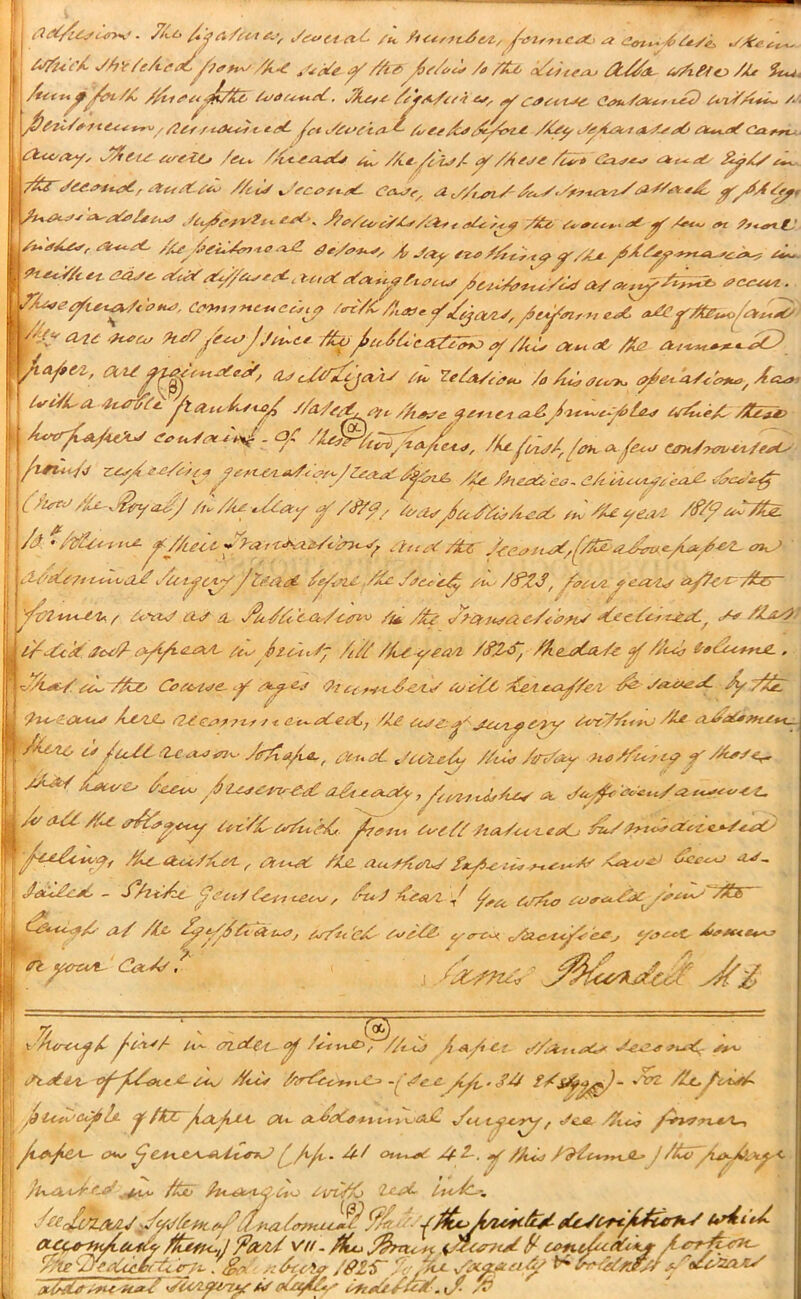 adhesions. The ligatures, several in number, formed a complete skein
which stretched from the side of the pelvis to the Linea Alba where the
hung forth through the wound. These ligatures, of course contained within
Peritoneum, remained for several weeks before they separated and came
away. There were few threads in the first of these two Cases and Eight in
the second, and in this second Case, a short but smart attack of phleg
masia dolens supervened. Notwithstanding the wound of few or more
inches, and the peritoneal sesons, to say nothing of the phlegmasia, in
neither case did diffused and dangerous peritonitis at any time occur.
These operations, commencing with those of Lizars, performed all of them (and
they are now not few) since the publication of this and the annexed
paper, are grounded, as Mr Lizars in relation to his own operations, has
(β)
with a noble frankness stated, on those general principles which these
two papers contain - Of these (α) two papers, the first, (on a few controverted
points respecting generation) read before the Medico-chirurgical Society
(now the Royal) in the May of 1819, was published in the year 1819 in the
10th Volume of their Transactions, and the second, (the above paper on
abdominal Surgery) read before the Society in 1823, four years after the
former, was as a Publication in the Transactions declined, so that
it did not appear in print, till the year 1825, the date of this volume.
That in the Course of ages numbers will hereafter be saved by the
means here recommended, the use of surgery within the abdomen
there is full reason to hope, and surely this to say nothing of those
that have been preserved already, furnishes a sufficient answer
to all the obloquy with which from well natured but misdirected
feeling, the author, and the authors Experiments have been as-
sailed - Strike Gentlemen, but hear! You who would join the
laugh at the Egyptians, which will you sacrifice, your women
or your Cats?
James Blundell M D
(α)
Though first in order of time, this paper stands second in
order of place in this Volume - (see pp. 34 et sqq) - For the first
principle of the paper on abdominal Surgery, see this former
paper on Generation (pp. 41 and 42. of this Volume) the passage
marked in the margin with red Ink.
(β)
See Lizars System of Anatomical Plates (the printed descriptions which
accompany them,) Part VII - The Brain, second & concluding portion
The Dedication. Edinburg 1825 To the Sagacity & boldness of Lizars
abdominal Surgery is deeply indebted. J. B